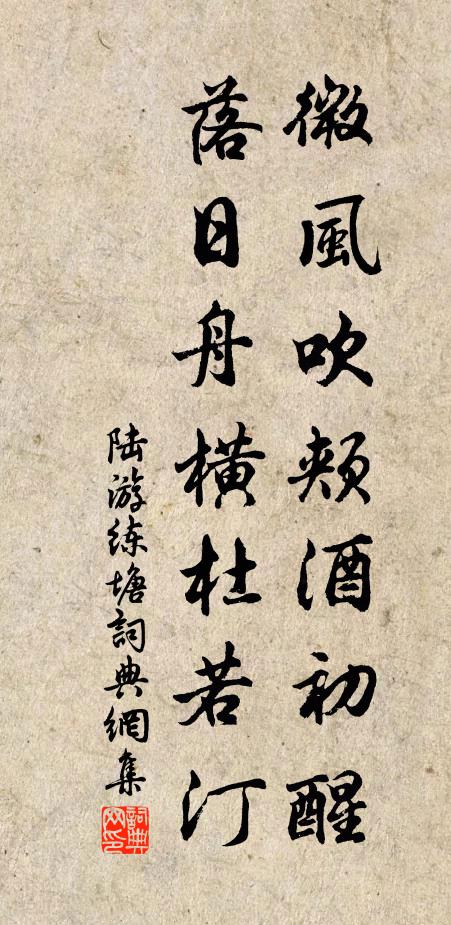 微風吹頰酒初醒
落日舟橫杜若汀
陆游练塘詞典網集
詞典
网印